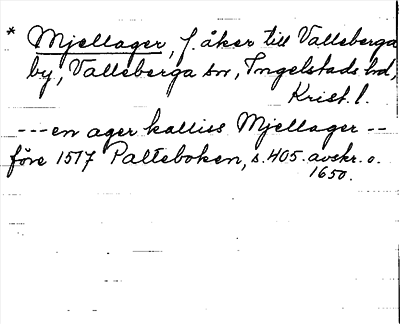 * Mjellager, f. åker till Valleberga
by, Valleberga sn, Ingelstads hd,
Krist. l.
---en ager kalliss Mjellager --
före 1517 Palteboken, s. 405. avskr. o.
1650.